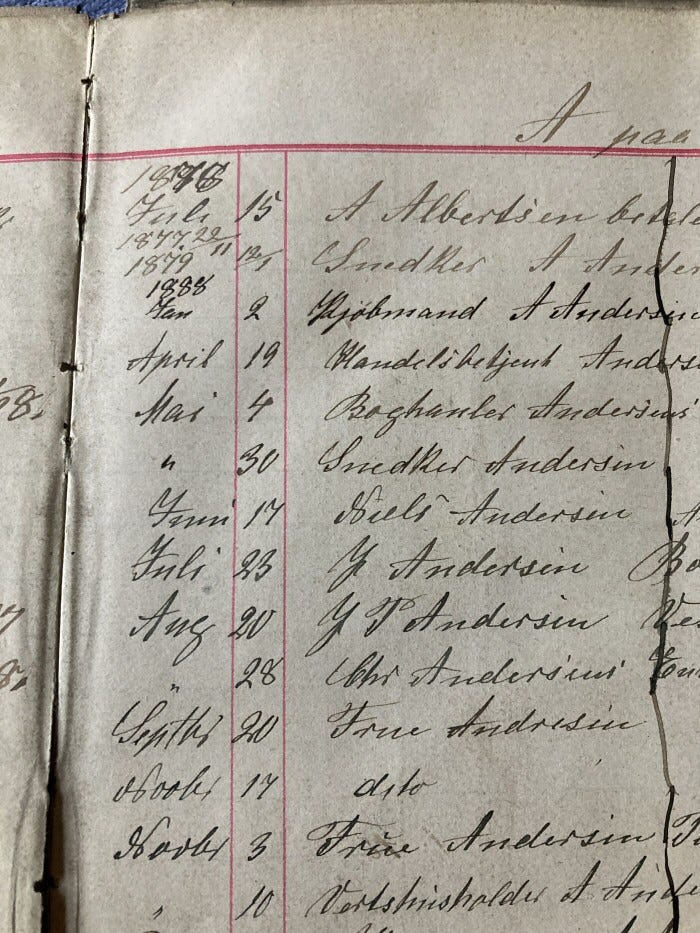 A paa
1878
Juli 15 A Albertsen betale
1877 22/11
1879 12/1 Snedker A Ander
1888
Jan 2 Kjöbmand A Andersin
April 19 Handelsbetjent Anders
Mai 4 Boghanler Andersins
" 30 Snedker Andersin
Juni 17 Niels Andersin A
Juli 23 J Andersin Bo
Aug 20 J P Andersin Ve
" 28 Chr Andersens En
Septbr 20 Frue Andresin
Novbr 17 dito
Novbr 3 Frue Andersin
" 10 Vertshusholder A Ande